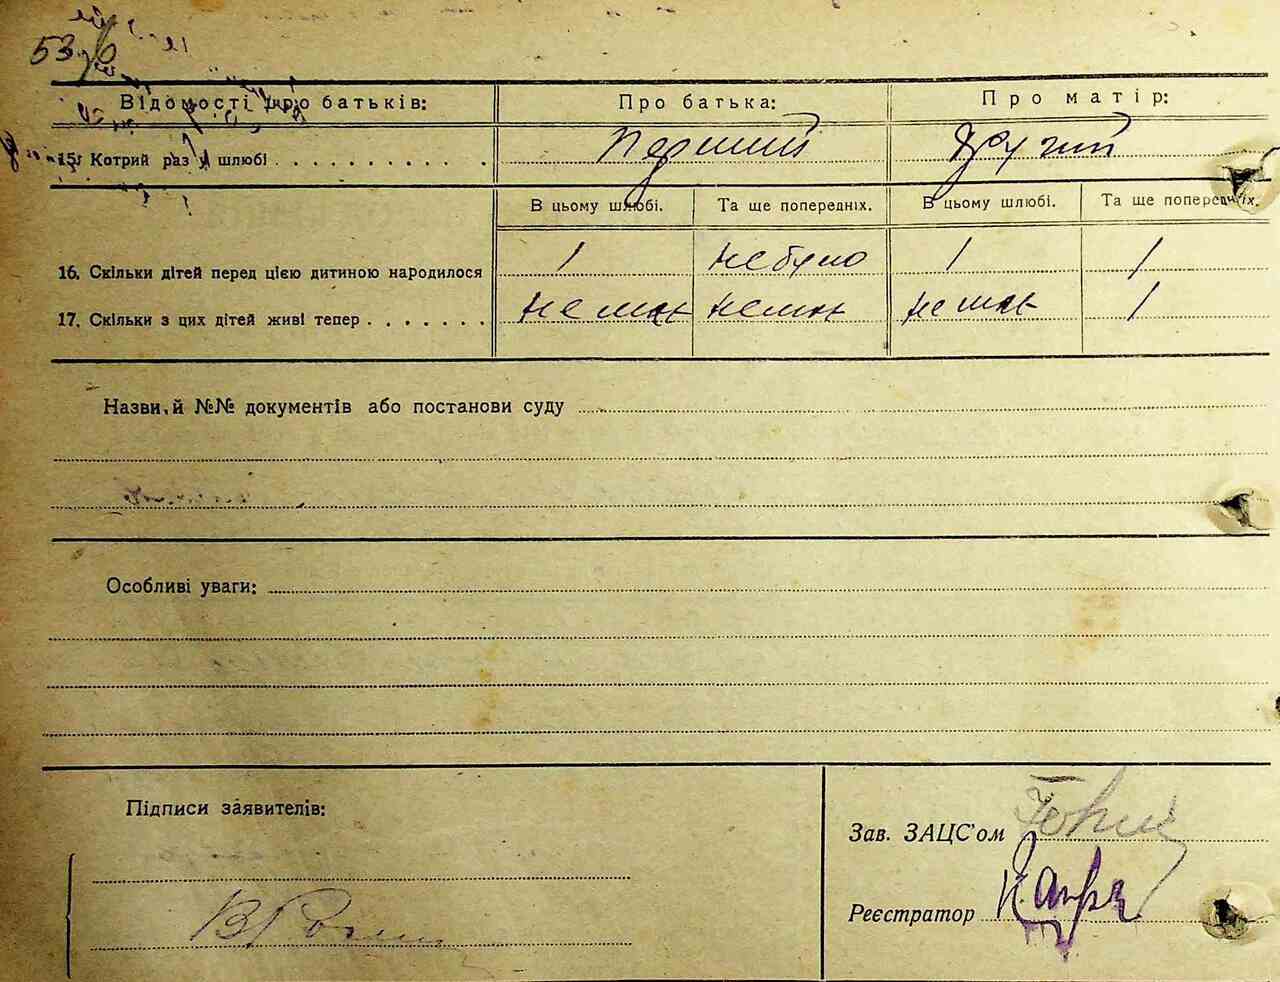 53
Відомості про батьків: Про батька: Про матір:
15. Котрий раз у шлюбі . . . . . . . . . . . Перший Другий
В цьому шлюбі. Та ще попередніх. В цьому шлюбі. Та ще попередніх.
16. Скільки дітей перед цією дитиною народилося 1 не було 1 1
17. Скільки з цих дітей живі тепер . . . . . . . нема нема нема 1
Назви й №№ документів або постанови суду
Особливі уваги:
Підписи заявителів:
Зав. ЗАЦС'ом
Реєстратор